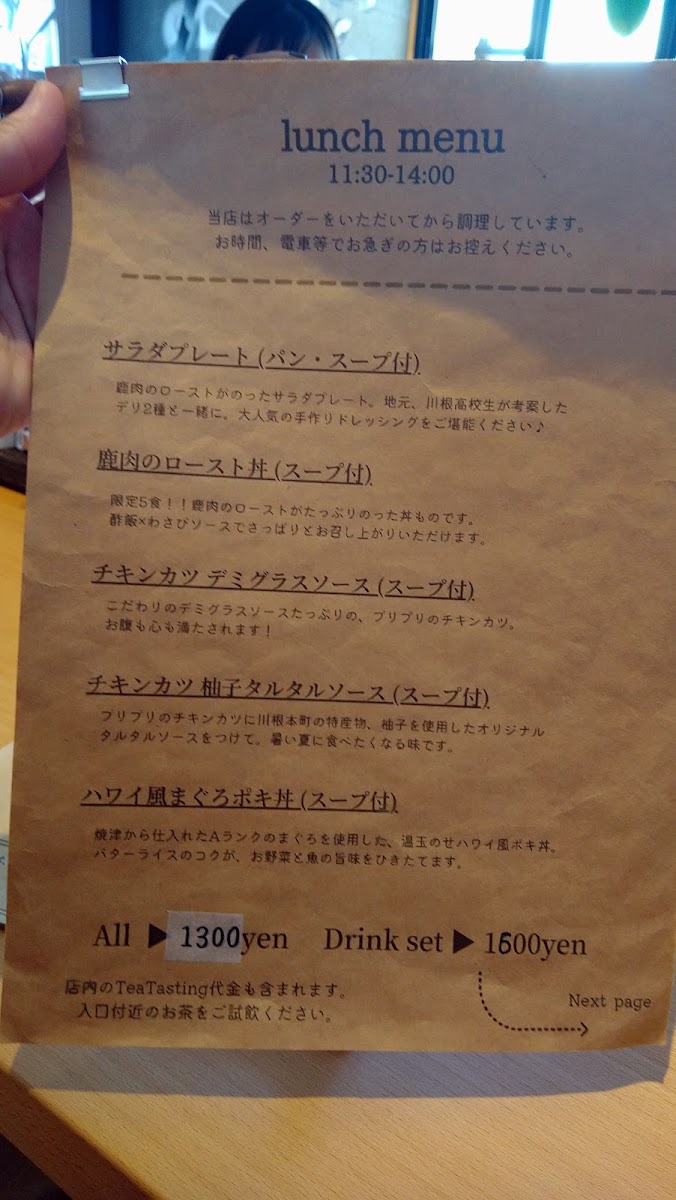 lunch menu
11:30-14:00
当店はオーダーをいただいてから調理しています。
お時間、電車等でお急ぎの方はお控えください。
サラダプレート (パン・スープ付)
鹿肉のローストがのったサラダプレート。地元、川根高校生が考案した
デリ2種と一緒に。大人気の手作りドレッシングをご堪能ください♪
鹿肉のロースト丼 (スープ付)
限定5食！！鹿肉のローストがたっぷりのった丼ものです。
酢飯×わさびソースでさっぱりとお召し上がりいただけます。
チキンカツ デミグラスソース (スープ付)
こだわりのデミグラスソースたっぷりの、プリプリのチキンカツ。
お腹も心も満たされます！
チキンカツ 柚子タルタルソース (スープ付)
プリプリのチキンカツに川根本町の特産物、柚子を使用したオリジナル
タルタルソースをつけて。暑い夏に食べたくなる味です。
ハワイ風まぐろポキ丼 (スープ付)
焼津から仕入れたAランクのまぐろを使用した、温玉のせハワイ風ポキ丼。
バターライスのコクが、お野菜と魚の旨味をひきたてます。
All ▶ 1300yen Drink set ▶ 1600yen
店内のTeaTasting代金も含まれます。
入口付近のお茶をご試飲ください。
Next page